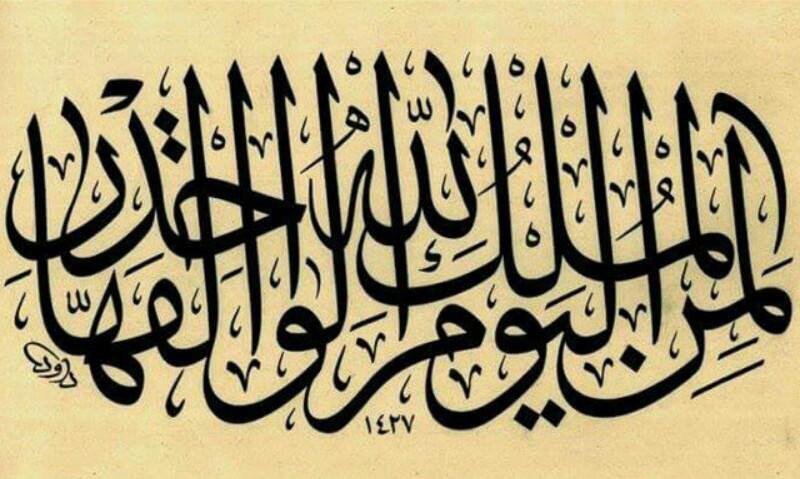 لِمَنِ الْمُلْكُ الْيَوْمَ لِلَّهِ الْوَاحِدِ الْقَهَّارِ
١٤٢٧